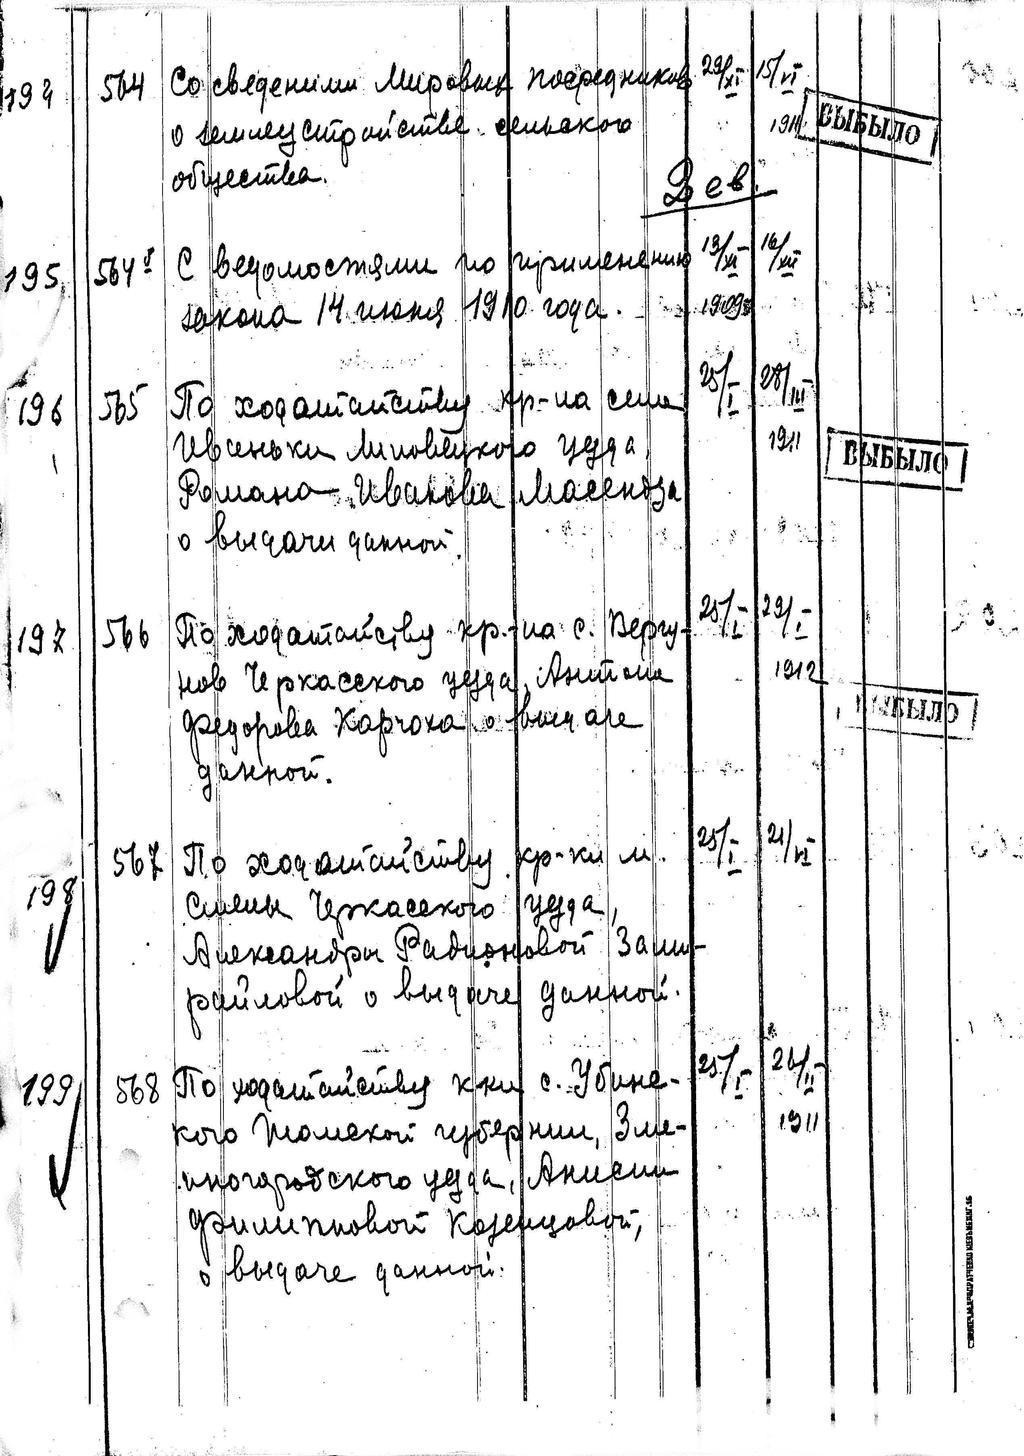 194 564 Со сведениями Мировых посредников 29/XI 15/VI
о землеустройстве сельского 1911 ВЫБЫЛО
общества.
195 564 С ведомостями по применению 13/XI 16/XII
закона 14 июня 1910 года. 1909
196 565 По ходатайству кр-на села 25/I 28/III
Ивеньки Липовецкого уезда, 1911 ВЫБЫЛО
Романа Иванова
о выдачи данной.
197 566 По ходатайству кр-на с. Вергу- 25/I 29/I
нов Черкасского уезда, Антона 1912
Федорова Харчоха о выдаче ВЫБЫЛО
данной.
198 567 По ходатайству кр-ки м. 25/I 21/VI
Смелы Черкасского уезда,
Александры Радионовой Зами-
райловой о выдаче данной.
199 568 По ходатайству к-ки с. Убинс- 25/I 26/II
кого Томской губернии, Зме- 1911
иногородского уезда, Анисии
Филипповой Козенцовой,
о выдаче данной.